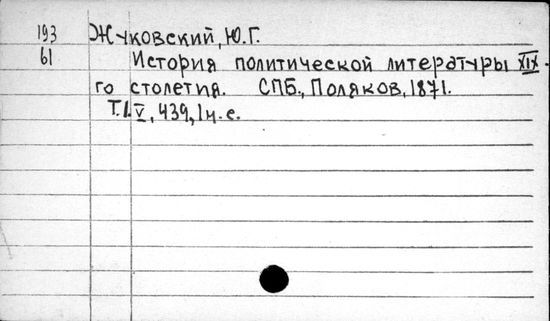 193 Жуковский, Ю.Г.
61 История политической литературы XIX-
го столетия. СПБ., Поляков, 1871.
Т.1. V, 439, 1 н. с.